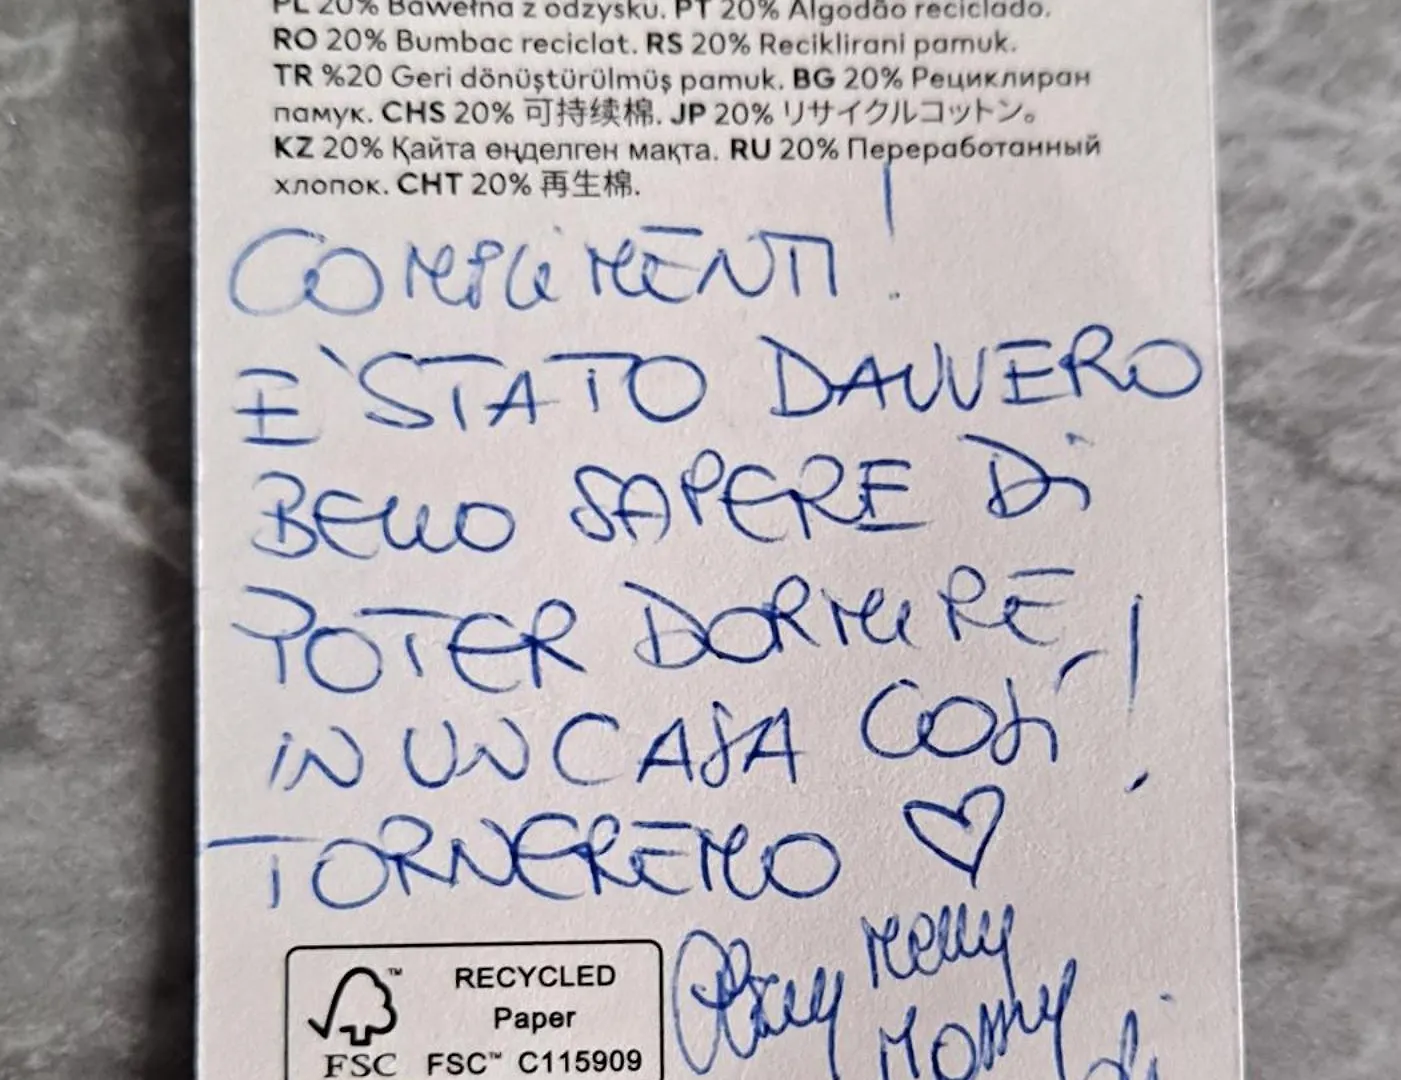 PL 20% Bawełna z odzysku. PT 20% Algodão reciclado.
RO 20% Bumbac reciclat. RS 20% Reciklirani pamuk.
TR %20 Geri dönüştürülmüş pamuk. BG 20% Рециклиран
памук. CHS 20% 可持续棉. JP 20% リサイクルコットン。
KZ 20% Қайта өңделген мақта. RU 20% Переработанный
хлопок. CHT 20% 再生棉.
COMPLIMENTI!
E` STATO DAVVERO
BELLO SAPERE DI
POTER DORMIRE
IN UN CASA COSÌ!
TORNEREMO ♡
RECYCLED
Paper
FSC™ C115909
FSC